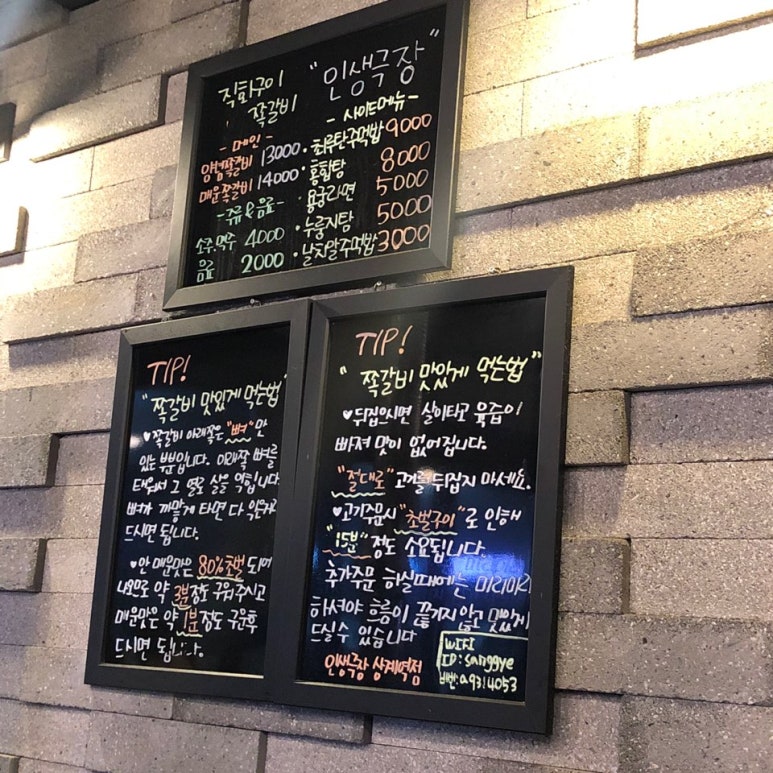 직화구이 "인생극장"
쪽갈비
-메인- -사이드메뉴-
양념쪽갈비 13000 · 최루탄주먹밥 9000
매운쪽갈비 14000 · 홍합탕 8000
-주류&음료- 라면 5000
소주.맥주 4000 · 누룽지탕 5000
음료 2000 · 날치알주먹밥 3000
TIP!
"쪽갈비 맛있게 먹는법"
♥쪽갈비 아래쪽은 "뼈"만
있는 부분입니다. 아래쪽 뼈를
태워서 그 열로 살을 익힙니다
뼈가 까맣게 타면 다
드시면 됩니다.
♥안 매운맛은 80%초벌 되어
나오므로 약 3분정도 구워주시고
매운맛은 약 1분정도 구운후
드시면 됩니다.
TIP!
"쪽갈비 맛있게 먹는법"
♥뒤집으시면 살이타고 육즙이
빠져 맛이 없어집니다.
"절대로" 고기를 뒤집지 마세요.
♥고기주문시 "초벌구이"로 인해
"15분"정도 소요됩니다.
추가주문 하실때에는 미리미리
하셔야 흐름이 끊기지않고 맛있게
드실수 있습니다
인생극장 상계역점
WIFI
ID: sanggye
비번: a9314053